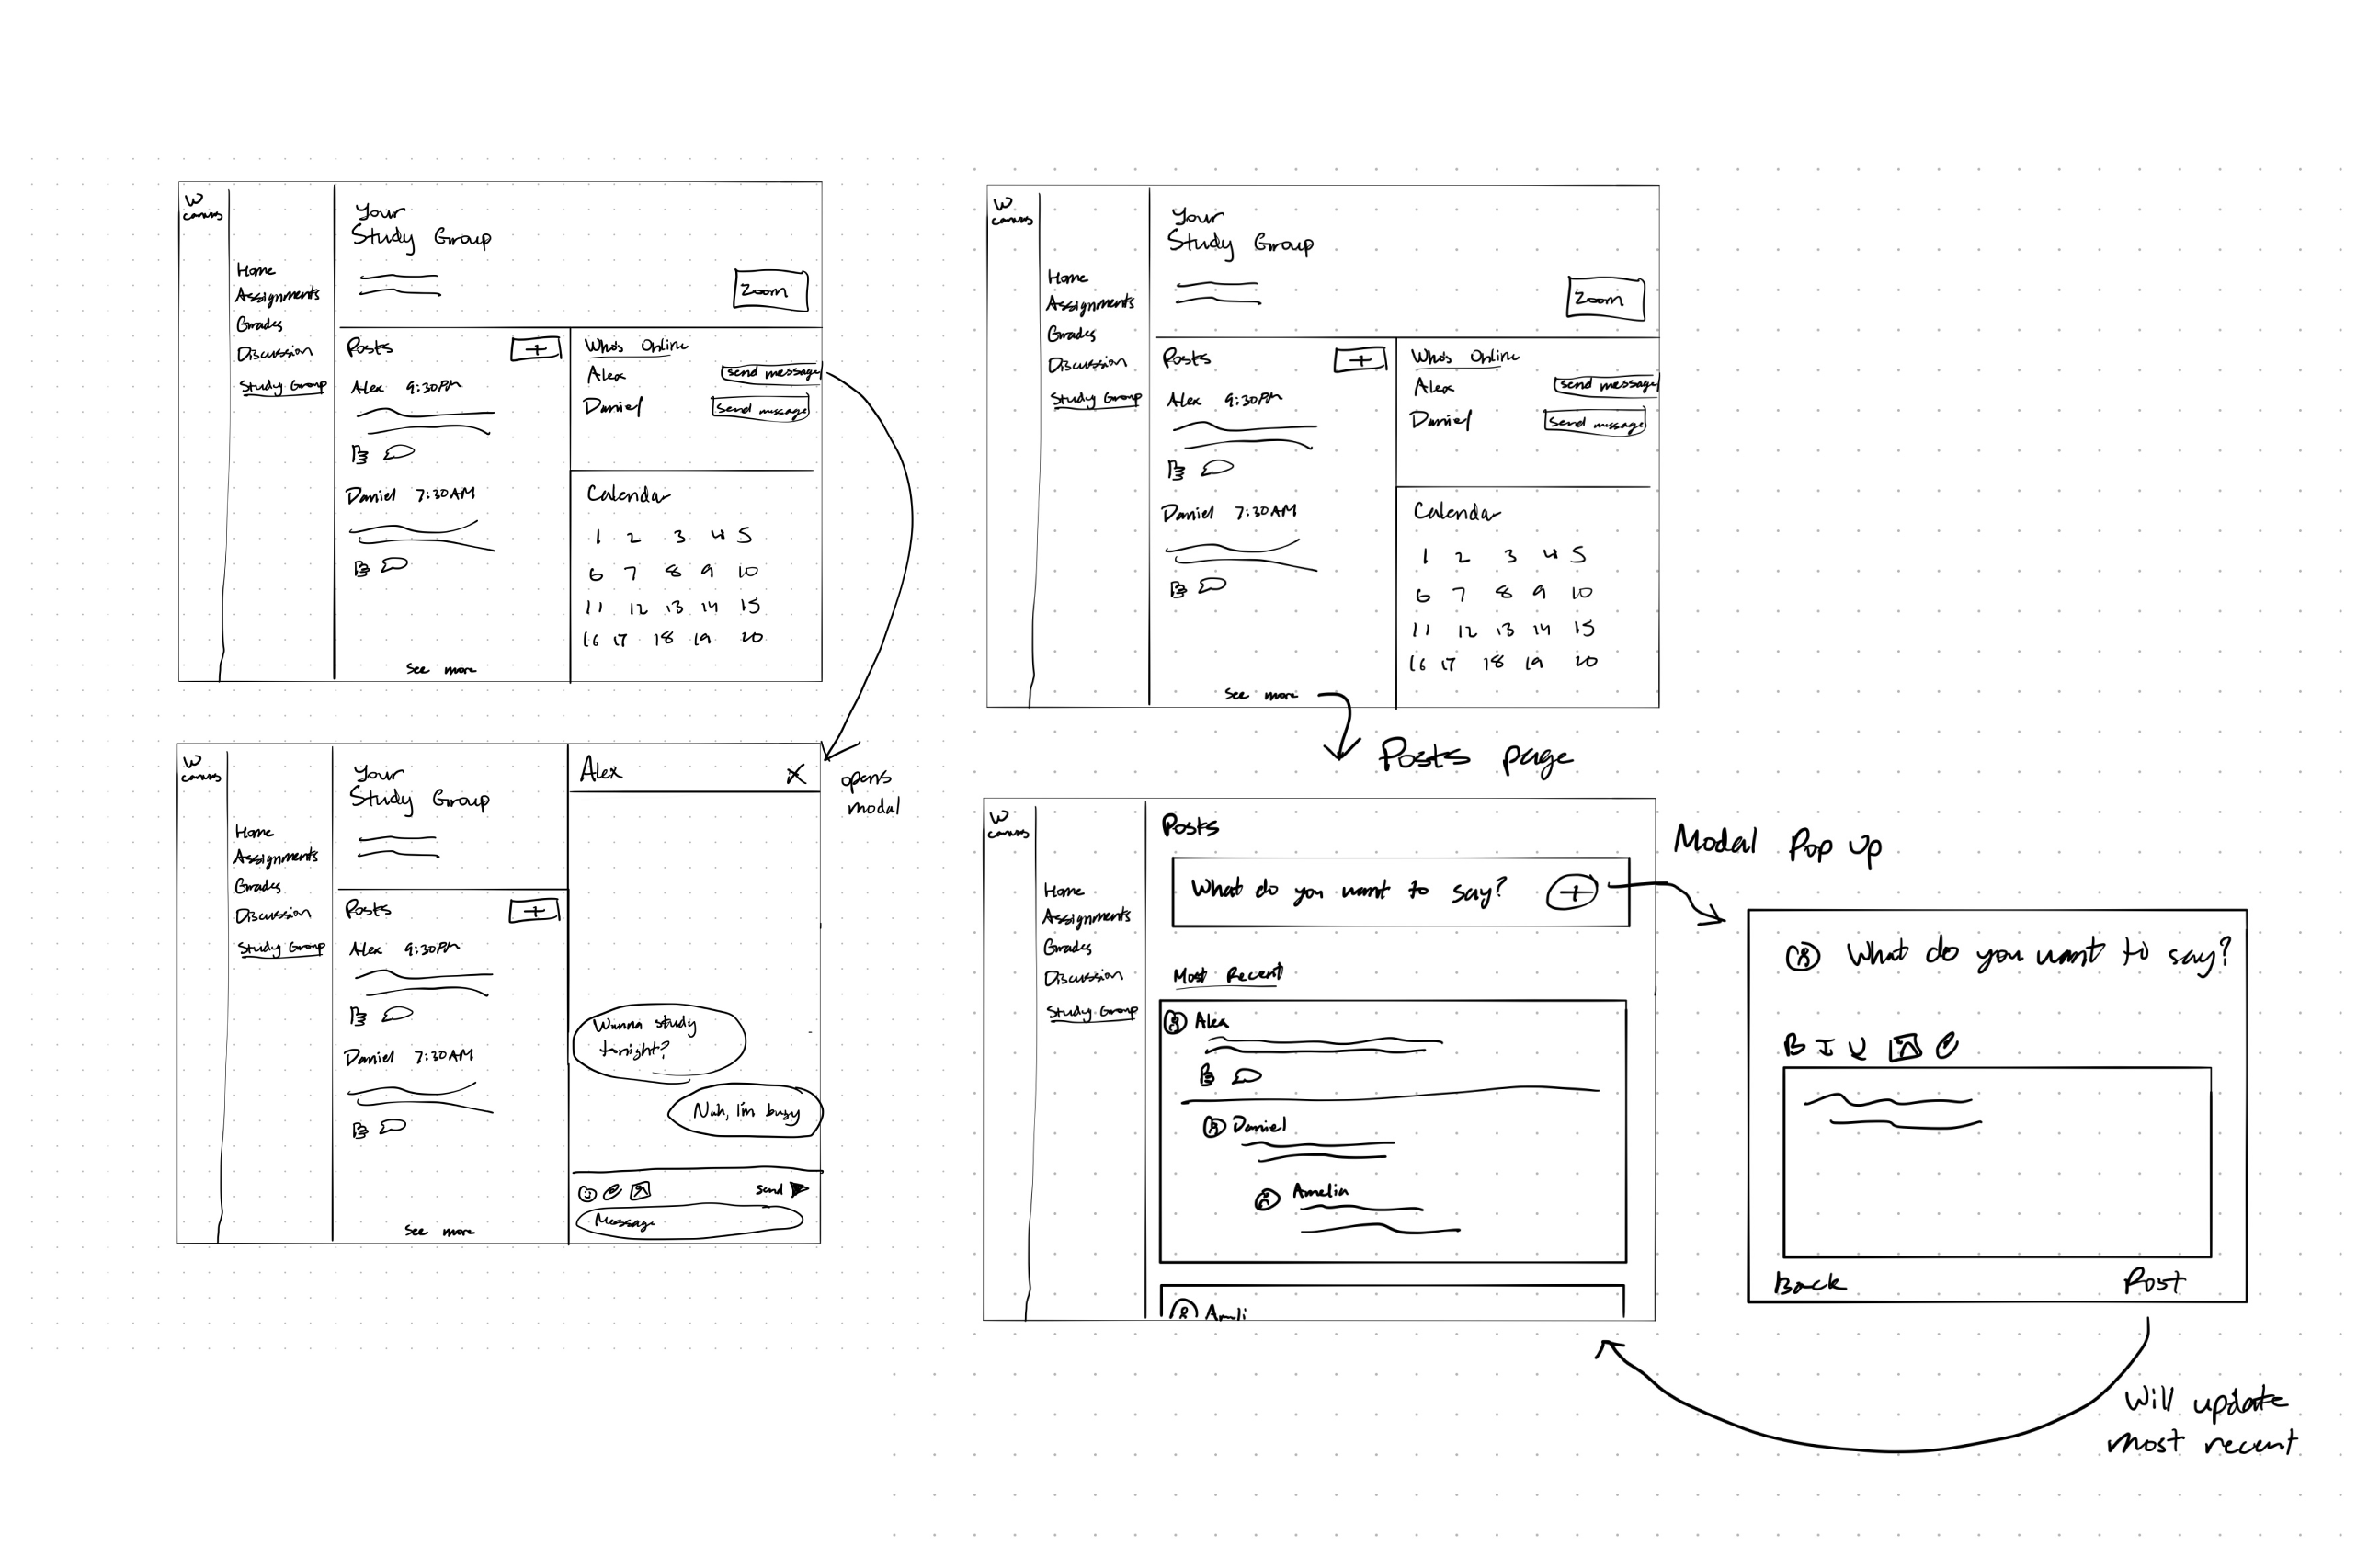 W
canvas
Your
Study Group
Home
Assignments
Grades
Discussion
Study Group
Zoom
Posts
+
Alex 9:30PM
Daniel 7:30AM
See more
Who's Online
Alex
send message
Daniel
send message
Calendar
1 2 3 4 5
6 7 8 9 10
11 12 13 14 15
16 17 18 19 20
opens
modal
W
canvas
Your
Study Group
Home
Assignments
Grades
Discussion
Study Group
Posts
+
Alex 9:30PM
Daniel 7:30AM
See more
Alex
X
Wanna study
tonight?
Nah, I'm busy
Send
Message
W
canvas
Your
Study Group
Home
Assignments
Grades
Discussion
Study Group
Zoom
Posts
+
Alex 9:30PM
Daniel 7:30AM
See more
Who's Online
Alex
send message
Daniel
send message
Calendar
1 2 3 4 5
6 7 8 9 10
11 12 13 14 15
16 17 18 19 20
Posts page
W
canvas
Home
Assignments
Grades
Discussion
Study Group
Posts
What do you want to say? +
Most Recent
Alex
Daniel
Amelia
Ameli
Modal Pop up
What do you want to say?
B I U
Back
Post
Will update
most recent